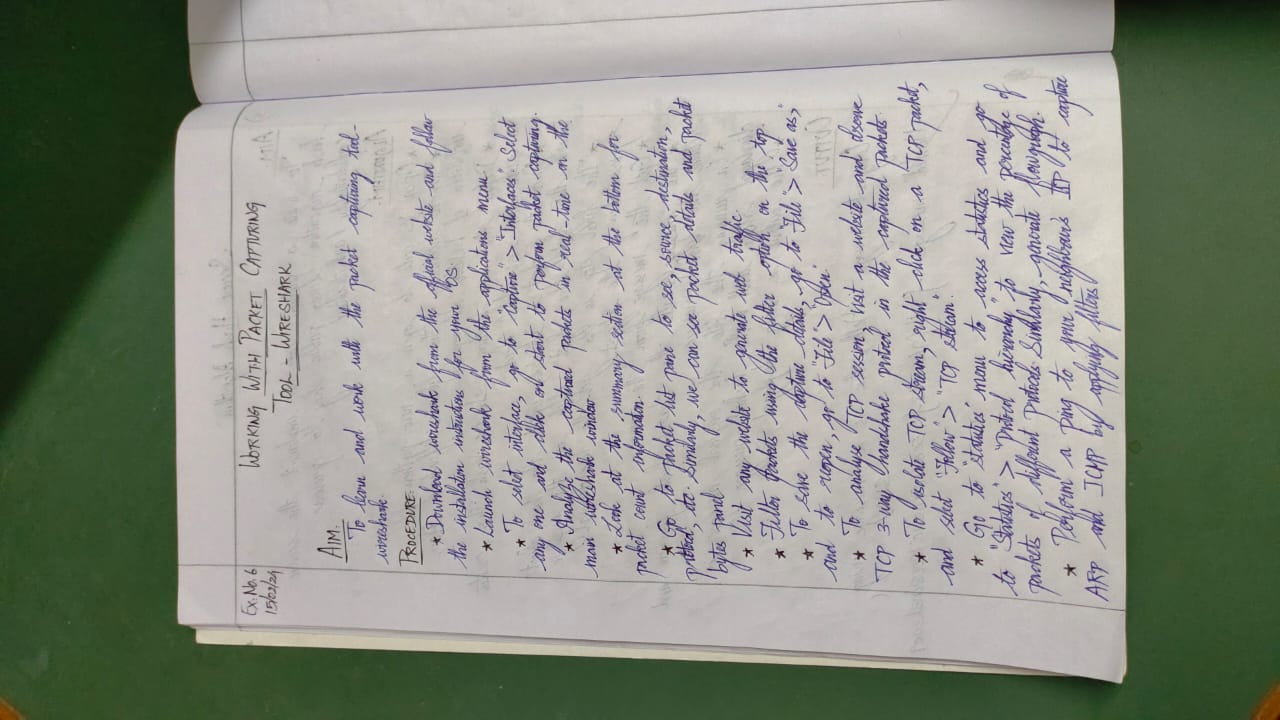 Ex. No. 6
15/02/24
WORKING WITH PACKET CAPTURING
TOOL - WIRESHARK
AIM.
To learn and work with the packet capturing tool-
wireshark.
PROCEDURE.
* Download wireshark from the official website and follow
the installation instructions for your OS.
* Launch wireshark from the applications menu.
* To select interface, go to "Capture" > "Interfaces". Select
any one and click on start to perform packet capturing.
* Analyze the captured packets in real-time on the
main wireshark window
* Look at the summary section at the bottom for
packet count information.
* Go to packet list pane to see, source, destination,
protocol, etc. Similarly, we can see packet details and packet
bytes panel.
* Visit any website to generate web traffic.
* Filter packets using the filter option on the top.
* To save the capture details, go to "File" > "Save as,"
and to reopen, go to "File" > "Open"
* To analyse TCP session, visit a website and observe
TCP 3-way handshake protocol in the captured packets.
* To isolate TCP stream, right click on a TCP packet,
and select "Follow" > "TCP stream".
* Go to "statistics" menu to access statistics and go
to "Statistics" > "Protocol hierarchy" to view the percentage of
packets of different protocols. Similarly, generate flowgraph.
* Perform a ping to your neighbour's IP to capture
ARP and ICMP by applying filters